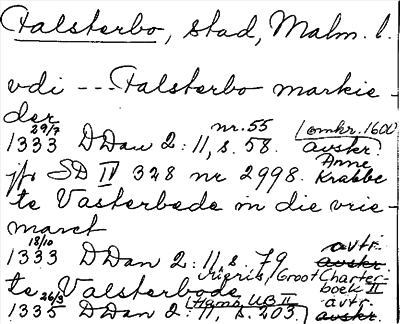 Falsterbo, stad, Malm. l.
vdi --- Falsterbo markie-
der
29/7 nr. 55 [omkr. 1600
1333 DDan 2: 11, s. 58. avskr.
Anne
jfr SD IV 328 nr 2998. Krabbe
te Valsterbode in die vrie-
maret
18/10 avtr.
1333 DDan 2: 11, s. 79 avskr
Vigriis/Groot Charter-
te Valsterbode boek II
26/3 [Hans. UB II avtr.
1335 DDan 2: 11, s. 203. avskr.